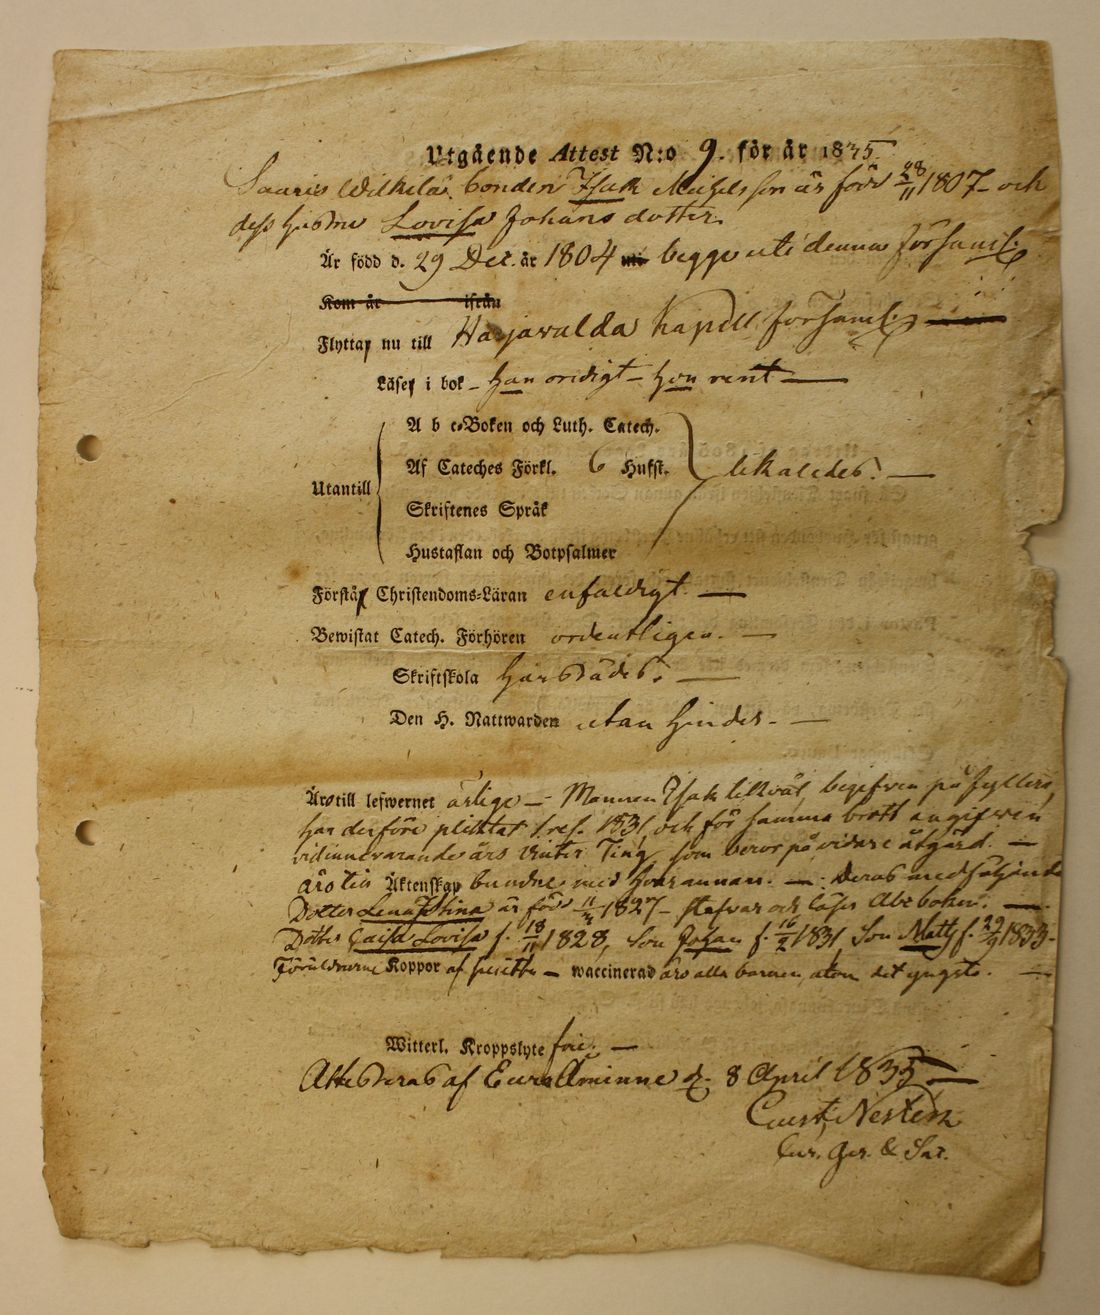 Utgående Attest N:o 9. för år 1835.
Saaris Wilkela bonden Isak Michelsson är född 28/11 1807 - och
dess hustru Lovisa Johans dotter.
Är född d. 29 Dec. år 1804 begge uti denna församl:
Kom år ifrån
Flyttar nu till Harjavalda Kapell församl:
Läser i bok - han oredigt - hon rent -
Utantill
A b c-Boken och Luth. Catech.
Af Cateches Förkl. 6 Hufst. likaledes. -
Skriftenes Språk
Hustaflan och Botpsalmer
Förstår Christendoms-Läran enfaldigt. -
Bewistat Catech. Förhören ordentligen. -
Skriftskola härstädes. -
Den H. Nattwarden utan hinder. -
Äro till lefwernet ärlige - Mannen Isak likväl begifven på fylleri,
har derföre plichtat 1 res. 1831, och för samma brott angifven
vid innevarande års Vinter Ting, som beror på vidare åtgärd. -
äro till Äktenskap bundne med hvarannan. - Deras medföljande
Dotter Lena Stina är född 1827 - stafvar och läser Abc boken. -
Dotter Caisa Lovisa f. 18/11 1828, Son Johan f. 16/2 1831, Son Matts f. 29/9 1833.
Föräldrarne Koppor af - waccinerad äro alla barnen utom det yngsta. -
Witterl. Kroppslyte frie. -
Attesteras af Eura Åminne d. 8 April 1835. -
Gust. Nestler